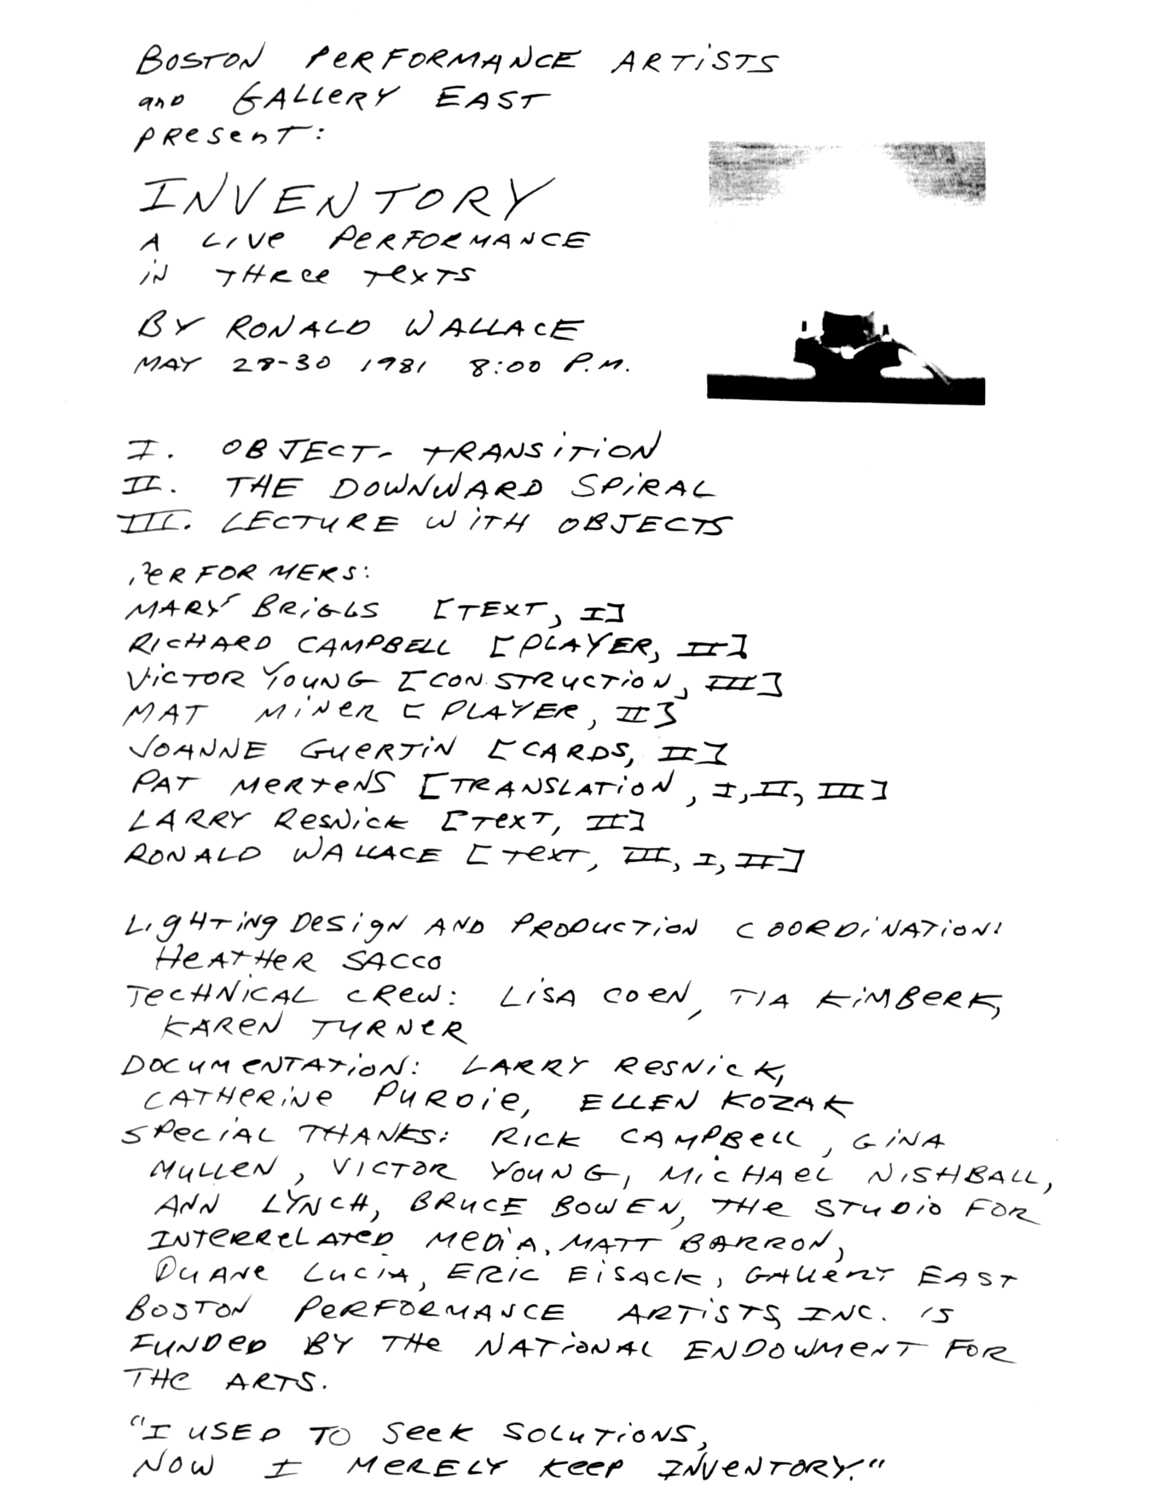 BOSTON PERFORMANCE ARTISTS
and GALLERY EAST
PRESENT:
INVENTORY
A LIVE PERFORMANCE
IN THREE TEXTS
BY RONALD WALLACE
MAY 28-30 1981 8:00 P.M.
I. OBJECT-TRANSITION
II. THE DOWNWARD SPIRAL
III. LECTURE WITH OBJECTS
PERFORMERS:
MARY BRIGGS [TEXT, I]
RICHARD CAMPBELL [PLAYER, II]
VICTOR YOUNG [CONSTRUCTION, III]
MAT MINER [PLAYER, II]
JOANNE GUERTIN [CARDS, II]
PAT MERTENS [TRANSLATION, I, II, III]
LARRY RESNICK [TEXT, II]
RONALD WALLACE [TEXT, III, I, II]
LIGHTING DESIGN AND PRODUCTION COORDINATION:
HEATHER SACCO
TECHNICAL CREW: LISA COEN, TIA KIMBERK,
KAREN TURNER
DOCUMENTATION: LARRY RESNICK,
CATHERINE PURDIE, ELLEN KOZAK
SPECIAL THANKS: RICK CAMPBELL, GINA
MULLEN, VICTOR YOUNG, MICHAEL NISHBALL,
ANN LYNCH, BRUCE BOWEN, THE STUDIO FOR
INTERRELATED MEDIA, MATT BARRON,
DUANE LUCIA, ERIC EISACK, GALLERY EAST
BOSTON PERFORMANCE ARTISTS, INC. IS
FUNDED BY THE NATIONAL ENDOWMENT FOR
THE ARTS.
"I USED TO SEEK SOLUTIONS,
NOW I MERELY KEEP INVENTORY."